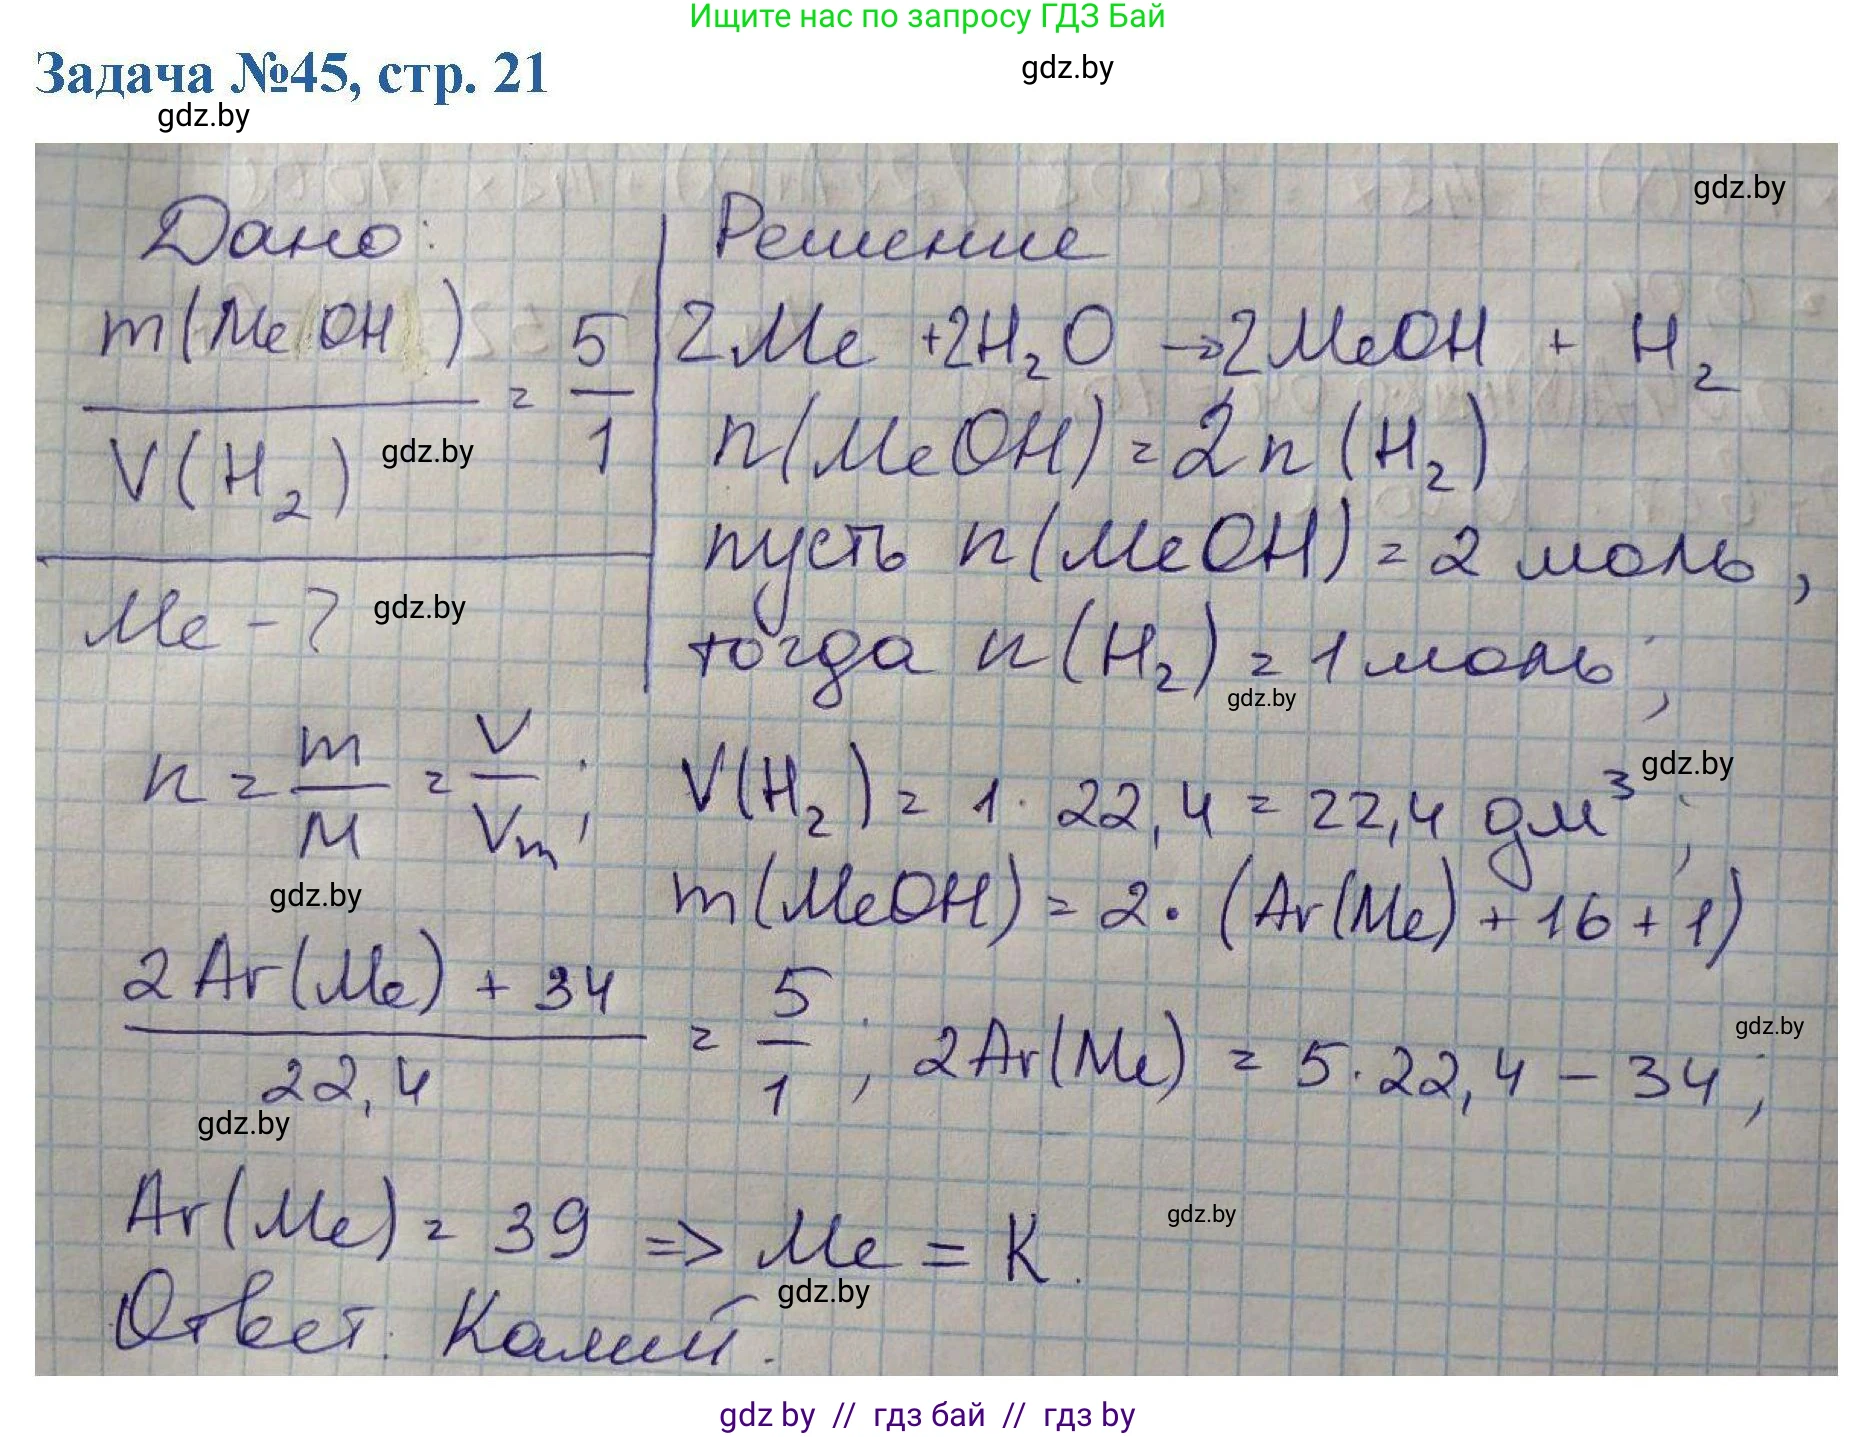 Ищите нас по запросу ГДЗ Бай
Задача №45, стр. 21
gdz.by
gdz.by
gdz.by
Дано:
m(MeOH) / V(H₂) = 5/1
gdz.by
Me - ?
gdz.by
Решение
2Me + 2H₂O → 2MeOH + H₂
n(MeOH) = 2n(H₂)
пусть n(MeOH) = 2 моль,
тогда n(H₂) = 1 моль;
gdz.by
n = m/M = V/Vm;
gdz.by
V(H₂) = 1 · 22,4 = 22,4 дм³;
gdz.by
m(MeOH) = 2 · (Ar(Me) + 16 + 1)
(2Ar(Me) + 34) / 22,4 = 5/1; 2Ar(Me) = 5 · 22,4 - 34;
gdz.by
gdz.by
Ar(Me) = 39 => Me = K.
gdz.by
gdz.by
Ответ: Калий.
gdz by // гдз бай // гдз by